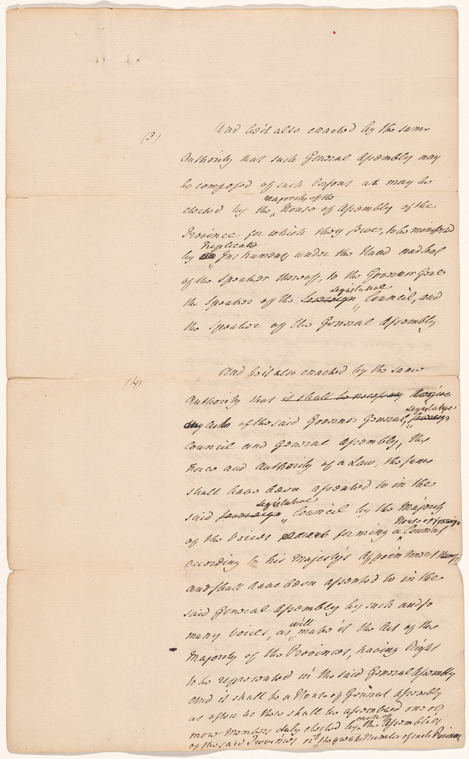 (3) And be it also enacted by the same
Authority that such General Assembly may
be composed of such Persons as may be
majority of the
elected by the House of Assembly of the
Province for which they serve, to be manifested
Triplicate
by Instruments under the Hand and Seal
of the Speaker thereof, to the Governor Genl
Legislative
the Speaker of the Council, and
the Speaker of the General Assembly
(4) And be it also enacted by the same
Authority that it shall be necessary to give
any Acts of the said Governor General,
Legislative
Council and General Assembly, the
Force and Authority of a Law, the same
shall have been assented to in the
Legislative
said Council by the Majority
of the Voices forming a Council
according to his Majesty's Appointment
and shall have been assented to in the
said General Assembly by such and so
will
many Voices, as make it the Act of the
Majority of the Provinces, having Right
to be represented in the said General Assembly
and it shall be a House of General Assembly
as often as there shall be assembled one or
more Members duly elected by the Assemblies
of the said Provinces or the greater Number of such Provinces